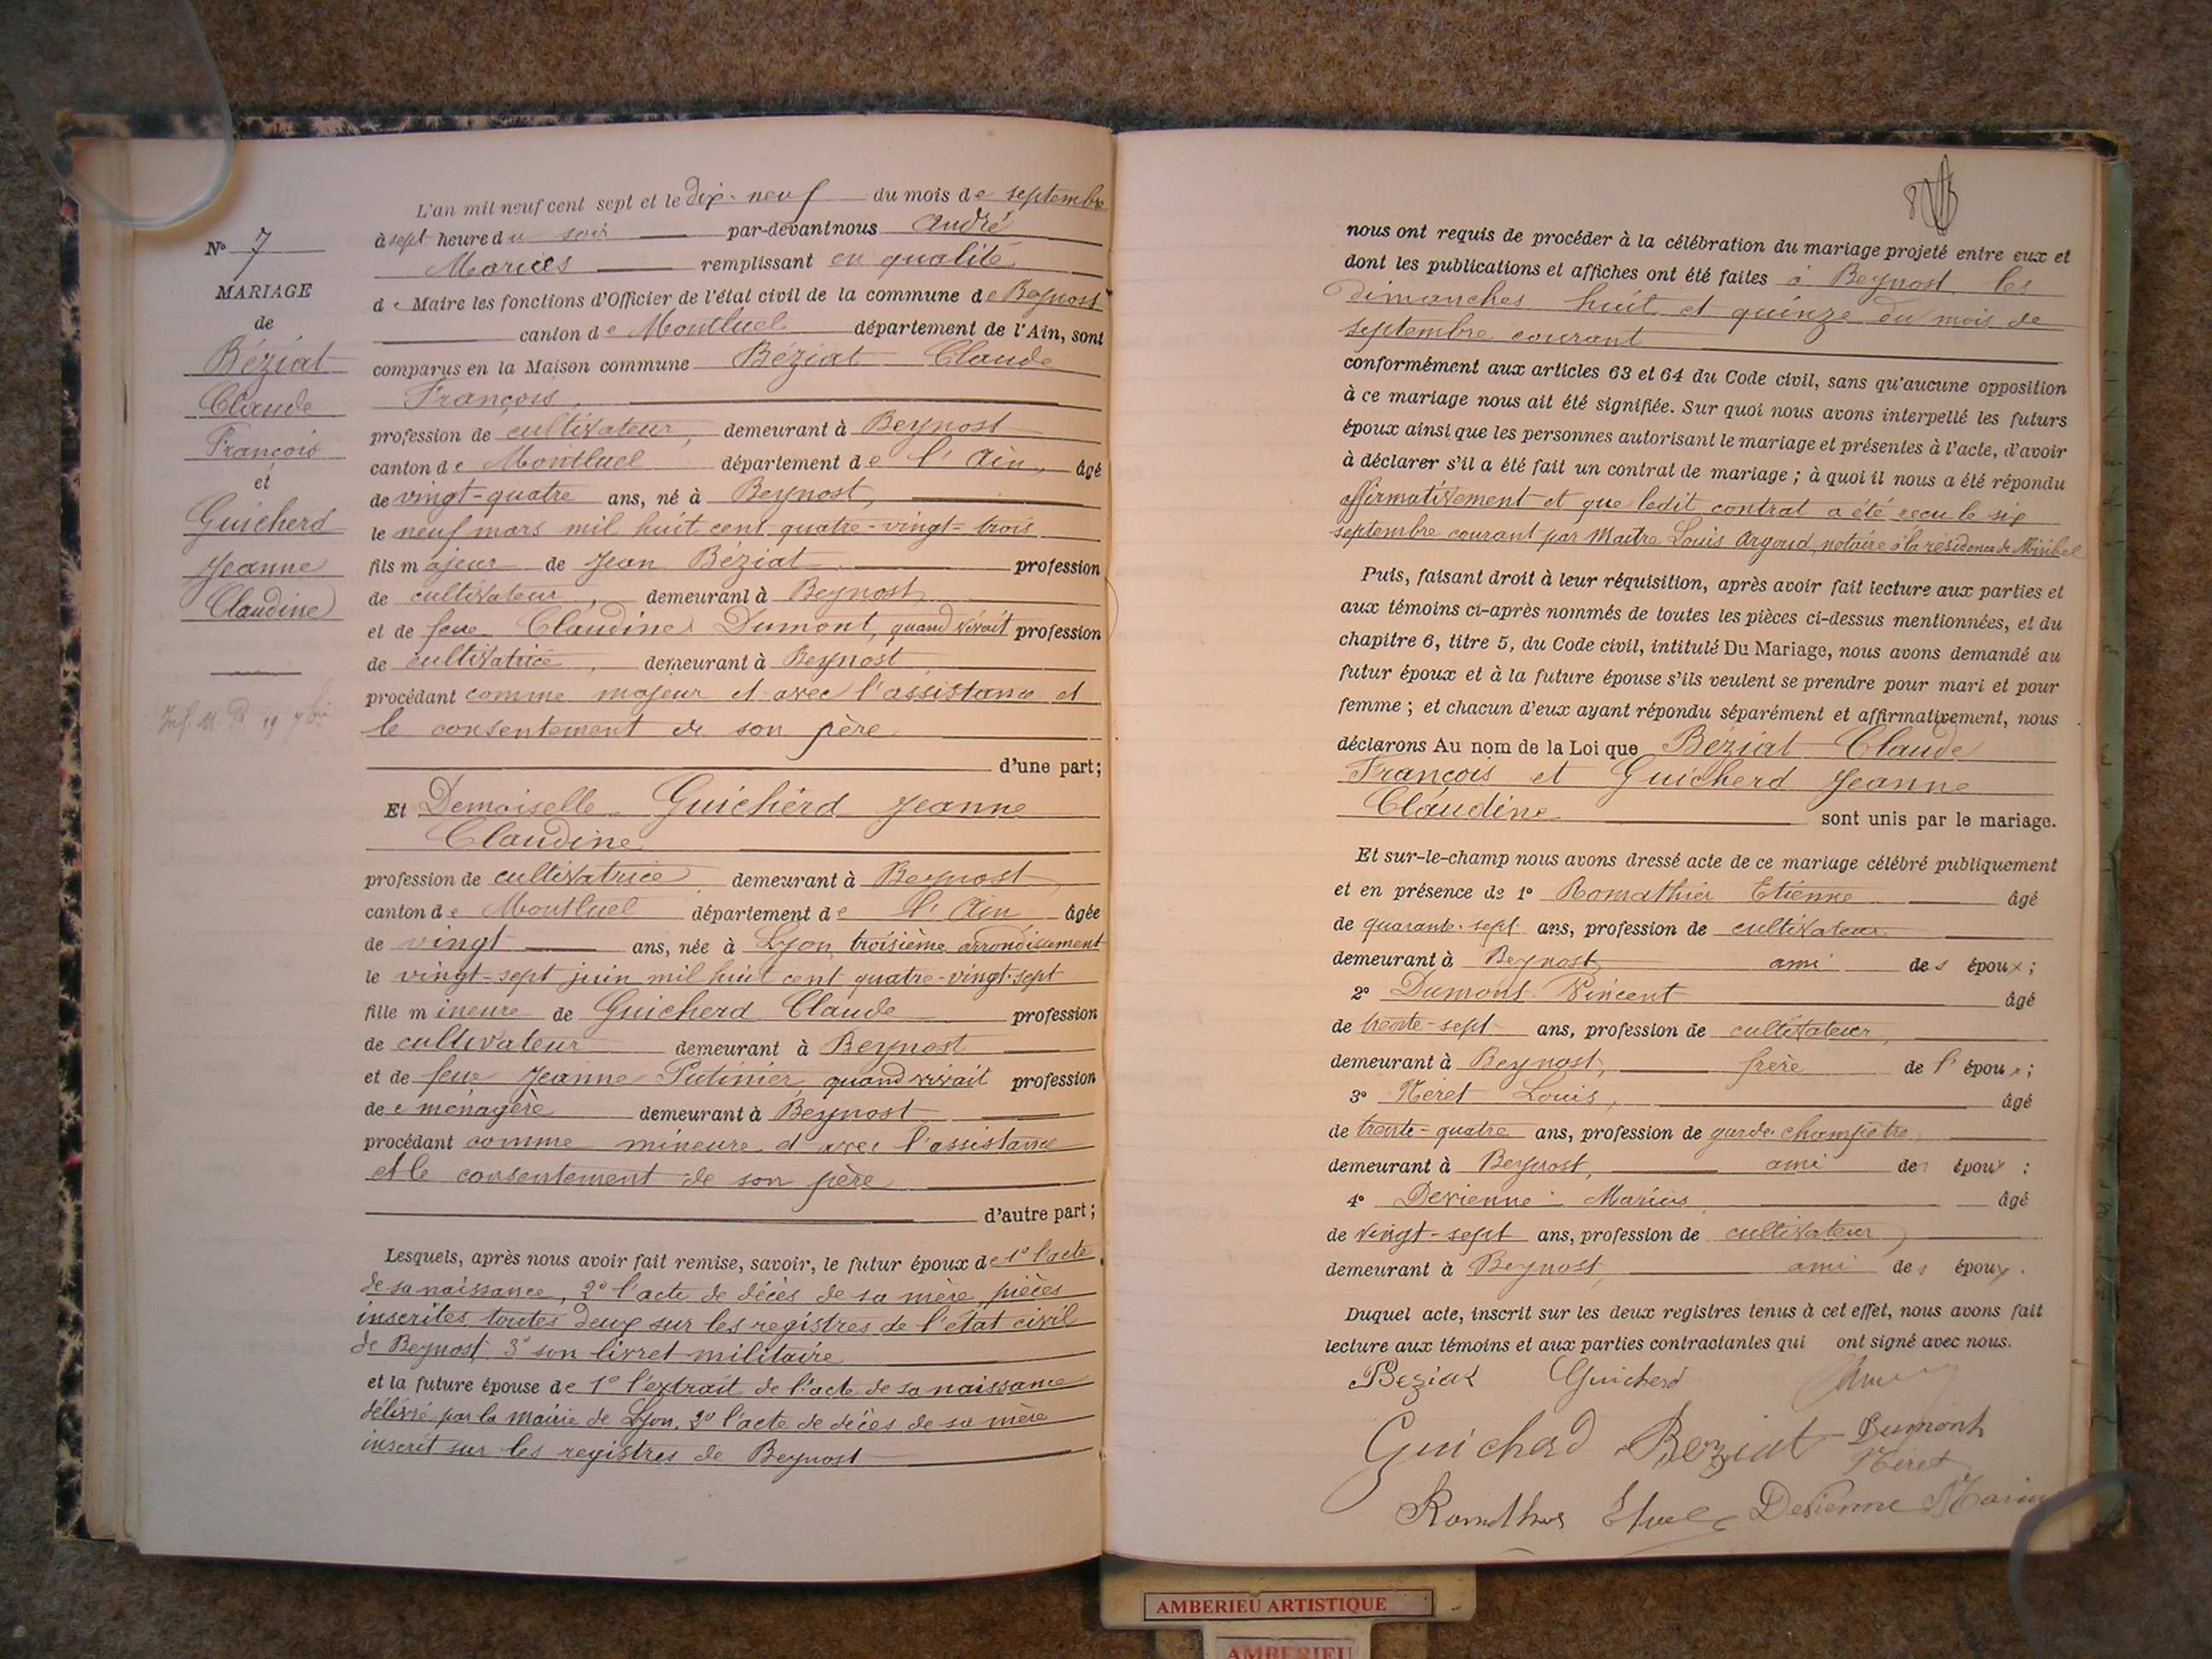 N° 7
MARIAGE
de
Béziat
Claude
François
et
Guicherd
Jeanne
Claudine
L'an mil neuf cent sept et le Dix-neuf du mois de septembre
à sept heure du soir par-devant nous André
Marius remplissant en qualité
de Maire les fonctions d'Officier de l'état civil de la commune de Beynost
canton de Montluel département de l'Ain, sont
comparus en la Maison commune Béziat Claude
François,
profession de cultivateur, demeurant à Beynost
canton de Montluel département de l'Ain, âgé
de vingt-quatre ans, né à Beynost,
le neuf mars mil huit cent quatre-vingt-trois
fils majeur de Jean Béziat profession
de cultivateur, demeurant à Beynost
et de feue Claudine Dumont, quand vivait profession
de cultivatrice, demeurant à Beynost
procédant comme majeur et avec l'assistance et
le consentement de son père
d'une part;
Et Demoiselle Guicherd Jeanne
Claudine
profession de cultivatrice demeurant à Beynost
canton de Montluel département de l'Ain âgée
de vingt ans, née à Lyon, troisième arrondissement
le vingt-sept juin mil huit cent quatre-vingt-sept
fille mineure de Guicherd Claude profession
de cultivateur demeurant à Beynost
et de feue Jeanne Putinier quand vivait profession
de ménagère demeurant à Beynost
procédant comme mineure et avec l'assistance
et le consentement de son père
d'autre part;
Lesquels, après nous avoir fait remise, savoir, le futur époux de 1° l'acte
de sa naissance, 2° l'acte de décès de sa mère, pièces
inscrites toutes deux sur les registres de l'état civil
de Beynost, 3° son livret militaire
et la future épouse de 1° l'extrait de l'acte de sa naissance
délivré par la mairie de Lyon, 2° l'acte de décès de sa mère
inscrit sur les registres de Beynost
8
nous ont requis de procéder à la célébration du mariage projeté entre eux et
dont les publications et affiches ont été faites à Beynost les
dimanches huit et quinze du mois de
septembre courant
conformément aux articles 63 et 64 du Code civil, sans qu'aucune opposition
à ce mariage nous ait été signifiée. Sur quoi nous avons interpellé les futurs
époux ainsi que les personnes autorisant le mariage et présentes à l'acte, d'avoir
à déclarer s'il a été fait un contrat de mariage; à quoi il nous a été répondu
affirmativement et que ledit contrat a été reçu le six
septembre courant par Maître Louis Argoud, notaire à la résidence de Miribel
Puis, faisant droit à leur réquisition, après avoir fait lecture aux parties et
aux témoins ci-après nommés de toutes les pièces ci-dessus mentionnées, et du
chapitre 6, titre 5, du Code civil, intitulé Du Mariage, nous avons demandé au
futur époux et à la future épouse s'ils veulent se prendre pour mari et pour
femme; et chacun d'eux ayant répondu séparément et affirmativement, nous
déclarons Au nom de la Loi que Béziat Claude
François et Guicherd Jeanne
Claudine sont unis par le mariage.
Et sur-le-champ nous avons dressé acte de ce mariage célébré publiquement
et en présence de 1° Romathier Etienne âgé
de quarante-sept ans, profession de cultivateur
demeurant à Beynost ami des époux;
2° Dumont Vincent âgé
de trente-sept ans, profession de cultivateur,
demeurant à Beynost, frère de l'époux;
3° Néret Louis, âgé
de trente-quatre ans, profession de garde-champêtre
demeurant à Beynost, ami des époux;
4° Devienne Marius âgé
de vingt-sept ans, profession de cultivateur
demeurant à Beynost ami des époux.
Duquel acte, inscrit sur les deux registres tenus à cet effet, nous avons fait
lecture aux témoins et aux parties contractantes qui ont signé avec nous.
Beziat Guicherd
Guicherd Beziat Dumont
Néret
Devienne Marius
AMBERIEU ARTISTIQUE
AMBERIEU